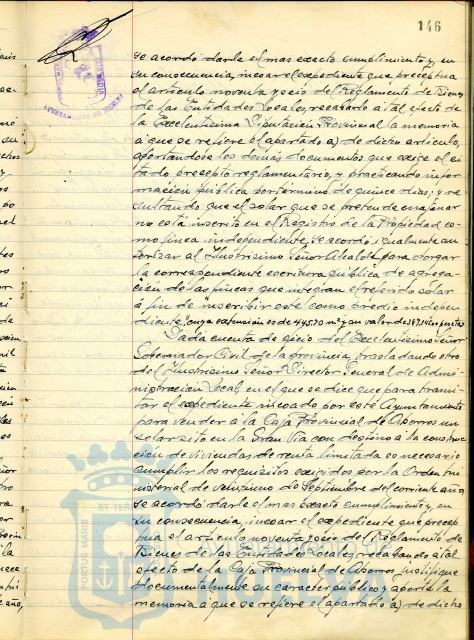 146
se acordó darle el mas exacto cumplimiento y, en
su consecuencia, incoar el expediente que preceptua
el artículo noventa y seis del Reglamento de Bienes
de las Entidades Locales, recabando a tal efecto de
la Excelentísima Diputación Provincial la memoria
a que se refiere el apartado a) de dicho artículo,
aportandose los demás documentos que exige el ci-
tado precepto reglamentario, y practicando infor-
mación pública por término de quince dias; y re-
sultando que el solar que se pretende enajenar
no está inscrito en el Registro de la Propiedad co-
mo finca independiente, se acordó igualmente au-
torizar al Ilustrísimo Señor Alcalde para otorgar
la correspondiente escritura pública de agrega-
ción de las fincas que integran el referido solar
á fin de inscribir este como predio indepen-
diente, cuya extensión es de 445,70 m² y un valor de pesetas
Dada cuenta de oficio del Excelentísimo Señor
Gobernador Civil de la provincia, trasladando otro
del Ilustrísimo Señor Director General de Admi-
nistración Local, en el que se dice que para trami-
tar el expediente incoado por este Ayuntamiento
para vender a la Caja Provincial de Ahorros un
solar sito en la Gran Via con destino a la construc-
ción de viviendas de renta limitada es necesario
cumplir los requisitos exigidos por la Orden mi-
nisterial de veintiuno de Septiembre del corriente año,
se acordó darle el mas exacto cumplimiento y, en
su consecuencia, incoar el expediente que precep-
tua el artículo noventa y seis del Reglamento de
Bienes de las Entidades Locales, recabando a tal
efecto de la Caja Provincial de Ahorros justifique
documentalmente su caracter público y aporte la
memoria a que se refiere el apartado a) de dicho